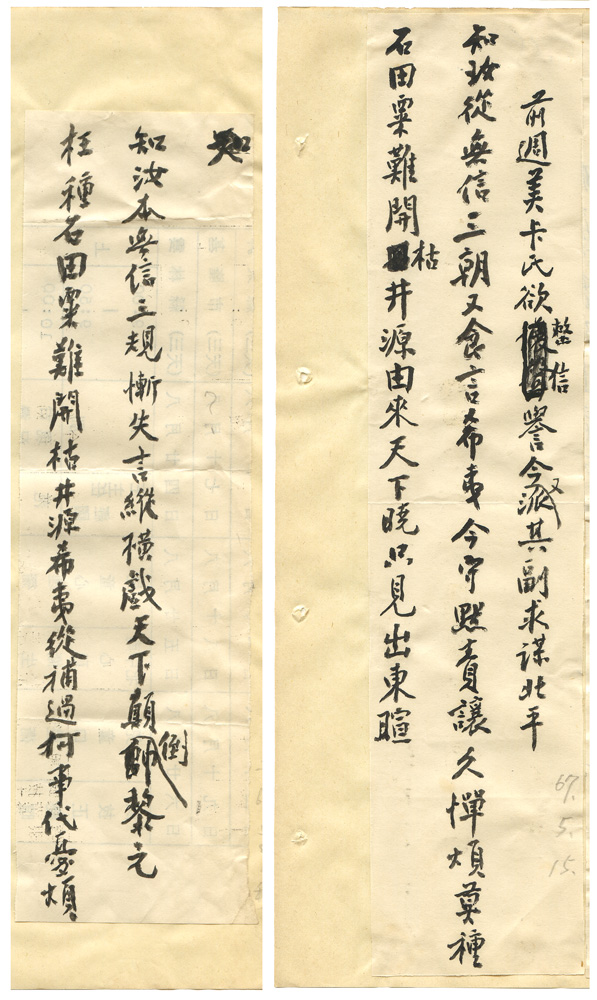 前週美卡氏欲整信譽今又派其副求謀北平
知汝從無信三朝又食言希夷今守默責讓久憚煩莫種
石田粟難開枯井源由來天下曉只見出東暄
67.
5.
15.
知
知汝本無信三規慚失言縱橫戲天下顛倒黎元
枉種石田粟難開枯井源希夷從補過何事代憂煩